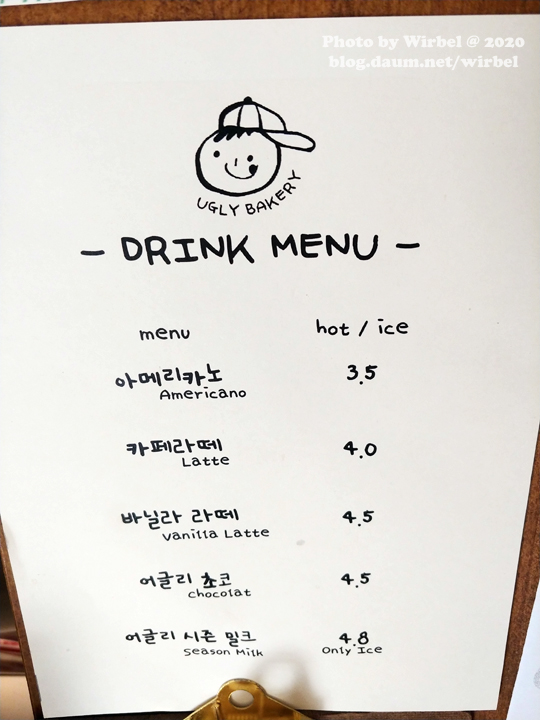 Photo by Wirbel @ 2020
blog.daum.net/wirbel
UGLY BAKERY
- DRINK MENU -
menu hot / ice
아메리카노 3.5
Americano
카페라떼 4.0
Latte
바닐라 라떼 4.5
vanilla Latte
어글리 쵸코 4.5
chocolat
어글리 시즌 밀크 4.8
Season Milk Only Ice